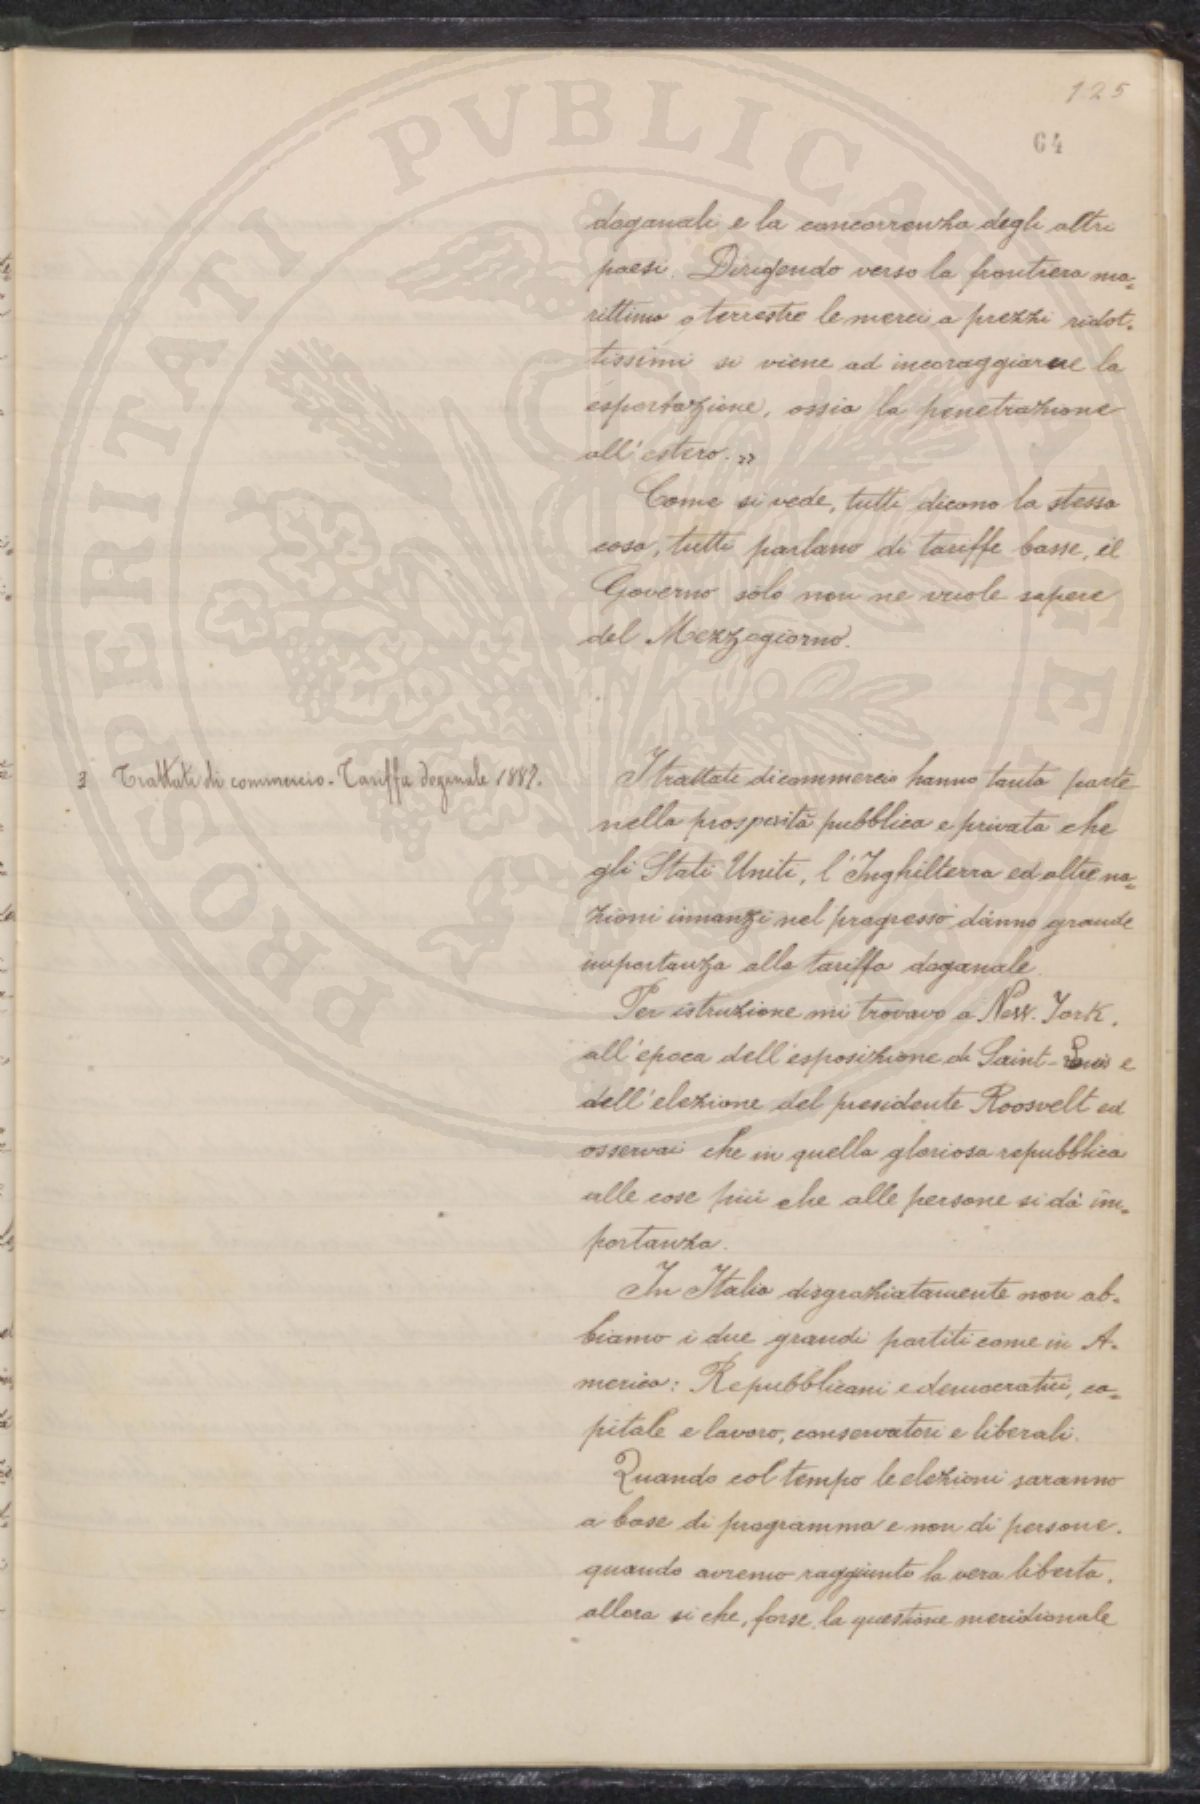 125
64
doganali e la concorrenza degli altri
paesi. Dirigendo verso la frontiera ma-
rittima o terrestre le merci a prezzi ridot-
tissimi si viene ad incoraggiarne la
esportazione, ossia la penetrazione
all'estero.»
Come si vede, tutti dicono la stessa
cosa, tutti parlano di tariffe basse, il
Governo solo non ne vuole sapere
del Mezzogiorno.
3 Trattati di commercio - Tariffa doganale 1887.
I trattati di commercio hanno tanta parte
nella prosperità pubblica e privata che
gli Stati Uniti, l'Inghilterra ed altre na-
zioni innanzi nel progresso dànno grande
importanza alla tariffa doganale.
Per istruzione mi trovavo a New-York,
all'epoca dell'esposizione di Saint-Louis e
dell'elezione del presidente Roosvelt ed
osservai che in quella gloriosa repubblica
alle cose più che alle persone si dà im-
portanza.
In Italia disgraziatamente non ab-
biamo i due grandi partiti come in A-
merica: Repubblicani e democratici, ca-
pitale e lavoro, conservatori e liberali.
Quando col tempo le elezioni saranno
a base di programma e non di persone,
quando avremo raggiunto la vera libertà,
allora si che, forse, la questione meridionale
PROSPERITATI PVBLICAE AVGENDAE